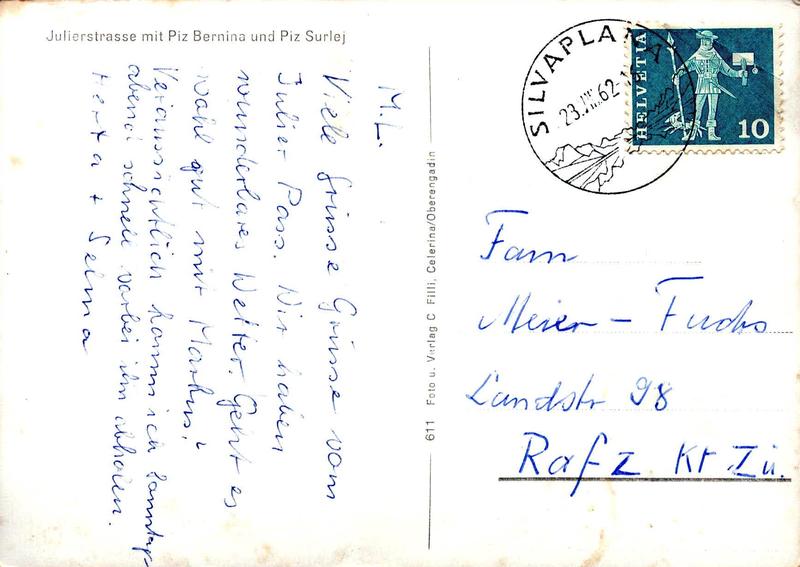 Julierstrasse mit Piz Bernina und Piz Surlej
M. L.
Viele Grüsse Grüsse vom
Julier Pass. Wir haben
wunderbares Wetter. Geht es
wohl gut mit Markus?
Voraussichtlich komm ich Sonntag
abend schnell vorbei ihn abholen.
Herta + Selma
611 Foto u. Verlag C Filli, Celerina/Oberengadin
SILVAPLANA
23. 62-1
HELVETIA
10
Fam
Meier - Fuchs
Landstr 98
Rafz Kt Zü.